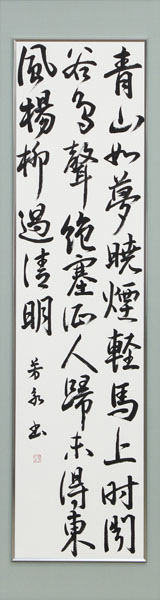 青山如夢曉煙輕馬上时聞
谷鳥聲絶塞征人歸未得東
風楊柳過清明
芳永书